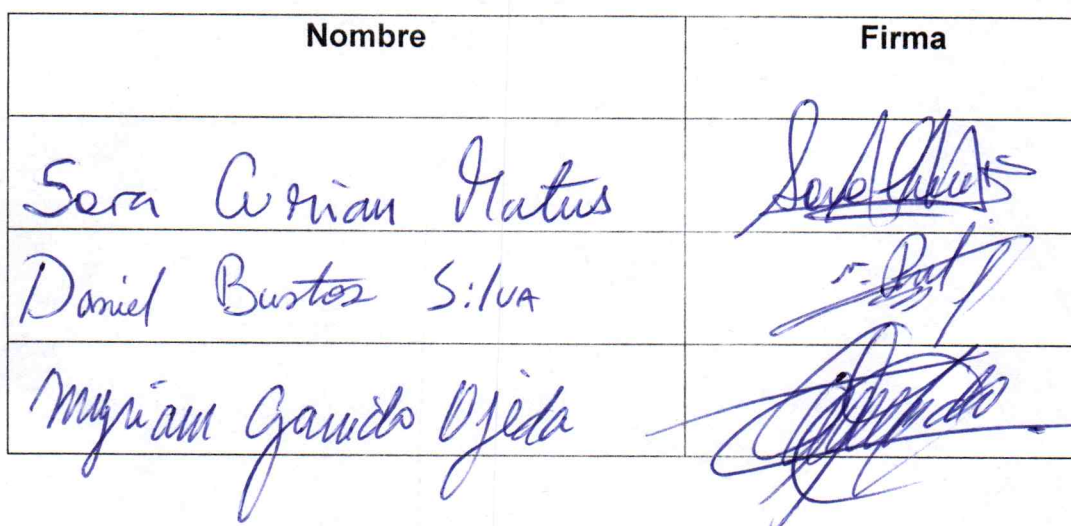 Nombre Firma
Sara Curian Matus
Daniel Bustos Silva
Myriam Garrido Ojeda